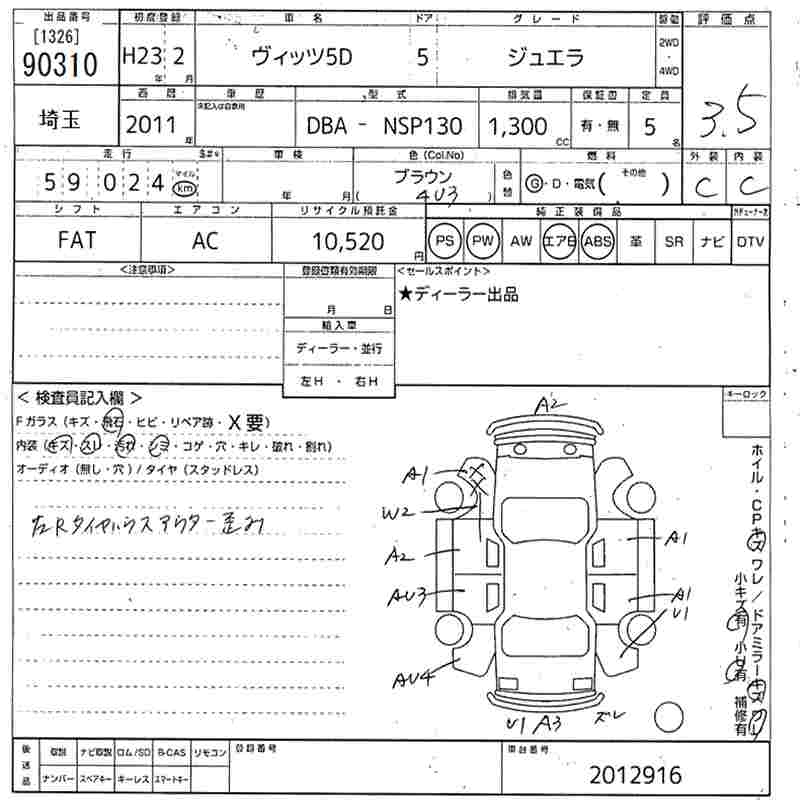 出品番号 初度登録 車名 ドア グレード 駆動 評価点
[1326]
90310 H23 2 ヴィッツ5D 5 ジュエラ 2WD・4WD
年 月
西暦 車歴 型式 排気量 保証書 定員
未記入は自家用
埼玉 2011 DBA - NSP130 1,300 有・無 5 3.5
年 cc 名
走行 車検 色(Col.No) 燃料 外装 内装
59024 マイル km 年 月 ブラウン 4U3 色替 G・D・電気( その他 ) C C
シフト エアコン リサイクル預託金 純正装備品
FAT AC 10,520 円 PS PW AW エアB ABS 革 SR ナビ DTV
<注意事項> 登録書類有効期限 <セールスポイント>
★ディーラー出品
月 日
輸入車
ディーラー・並行
左H ・ 右H
< 検査員記入欄 > キーロック
Fガラス(キズ・飛石・ヒビ・リペア跡・X要)
内装(キズ・スレ・汚れ・シミ・コゲ・穴・キレ・破れ・割れ)
オーディオ(無し・穴)/タイヤ(スタッドレス)
左Rタイヤハウスアウター歪み
A2
A1
W2
A2 A1
AU3 A1
U1
AU4
U1 A3 ズレ
ホイル・CPキズ ワレ/ドアミラーキズ ワレ
小キズ有 小U有 補修有
後送品 取説 ナビ取説 ロム/SD B-CAS リモコン 登録番号 車台番号
ナンバー スペアキー キーレス スマートキー 2012916